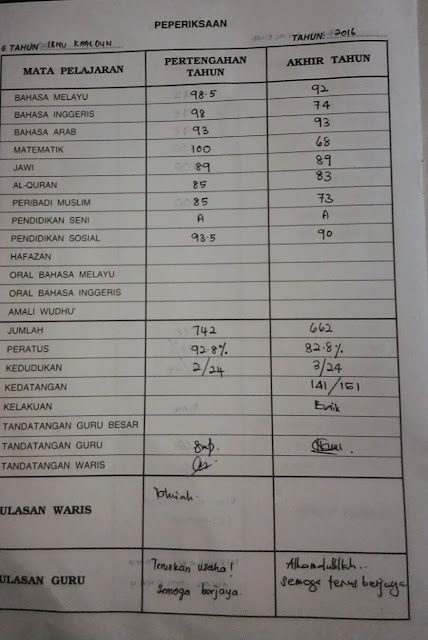 PEPERIKSAAN
6 TAHUN IBNU KHALDUN TAHUN: 2016
MATA PELAJARAN PERTENGAHAN TAHUN AKHIR TAHUN
BAHASA MELAYU 98.5 92
BAHASA INGGERIS 98 74
BAHASA ARAB 93 93
MATEMATIK 100 68
JAWI 89 89
AL-QURAN 85 83
PERIBADI MUSLIM 85 73
PENDIDIKAN SENI A A
PENDIDIKAN SOSIAL 93.5 90
HAFAZAN
ORAL BAHASA MELAYU
ORAL BAHASA INGGERIS
AMALI WUDHU'
JUMLAH 742 662
PERATUS 92.8% 82.8%
KEDUDUKAN 2/24 3/24
KEDATANGAN 141/151
KELAKUAN Baik
TANDATANGAN GURU BESAR
TANDATANGAN GURU
TANDATANGAN WARIS
ULASAN WARIS
ULASAN GURU Teruskan usaha! Alhamdulillah..
Semoga berjaya. semoga terus berjaya